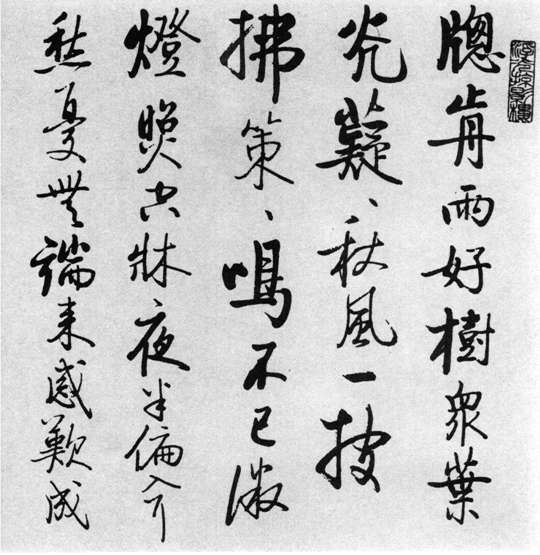 牕前兩好樹眾葉
光薿、秋風一披
拂策、鳴不已微
燈照空牀夜半偏入
愁憂無端來感歎成